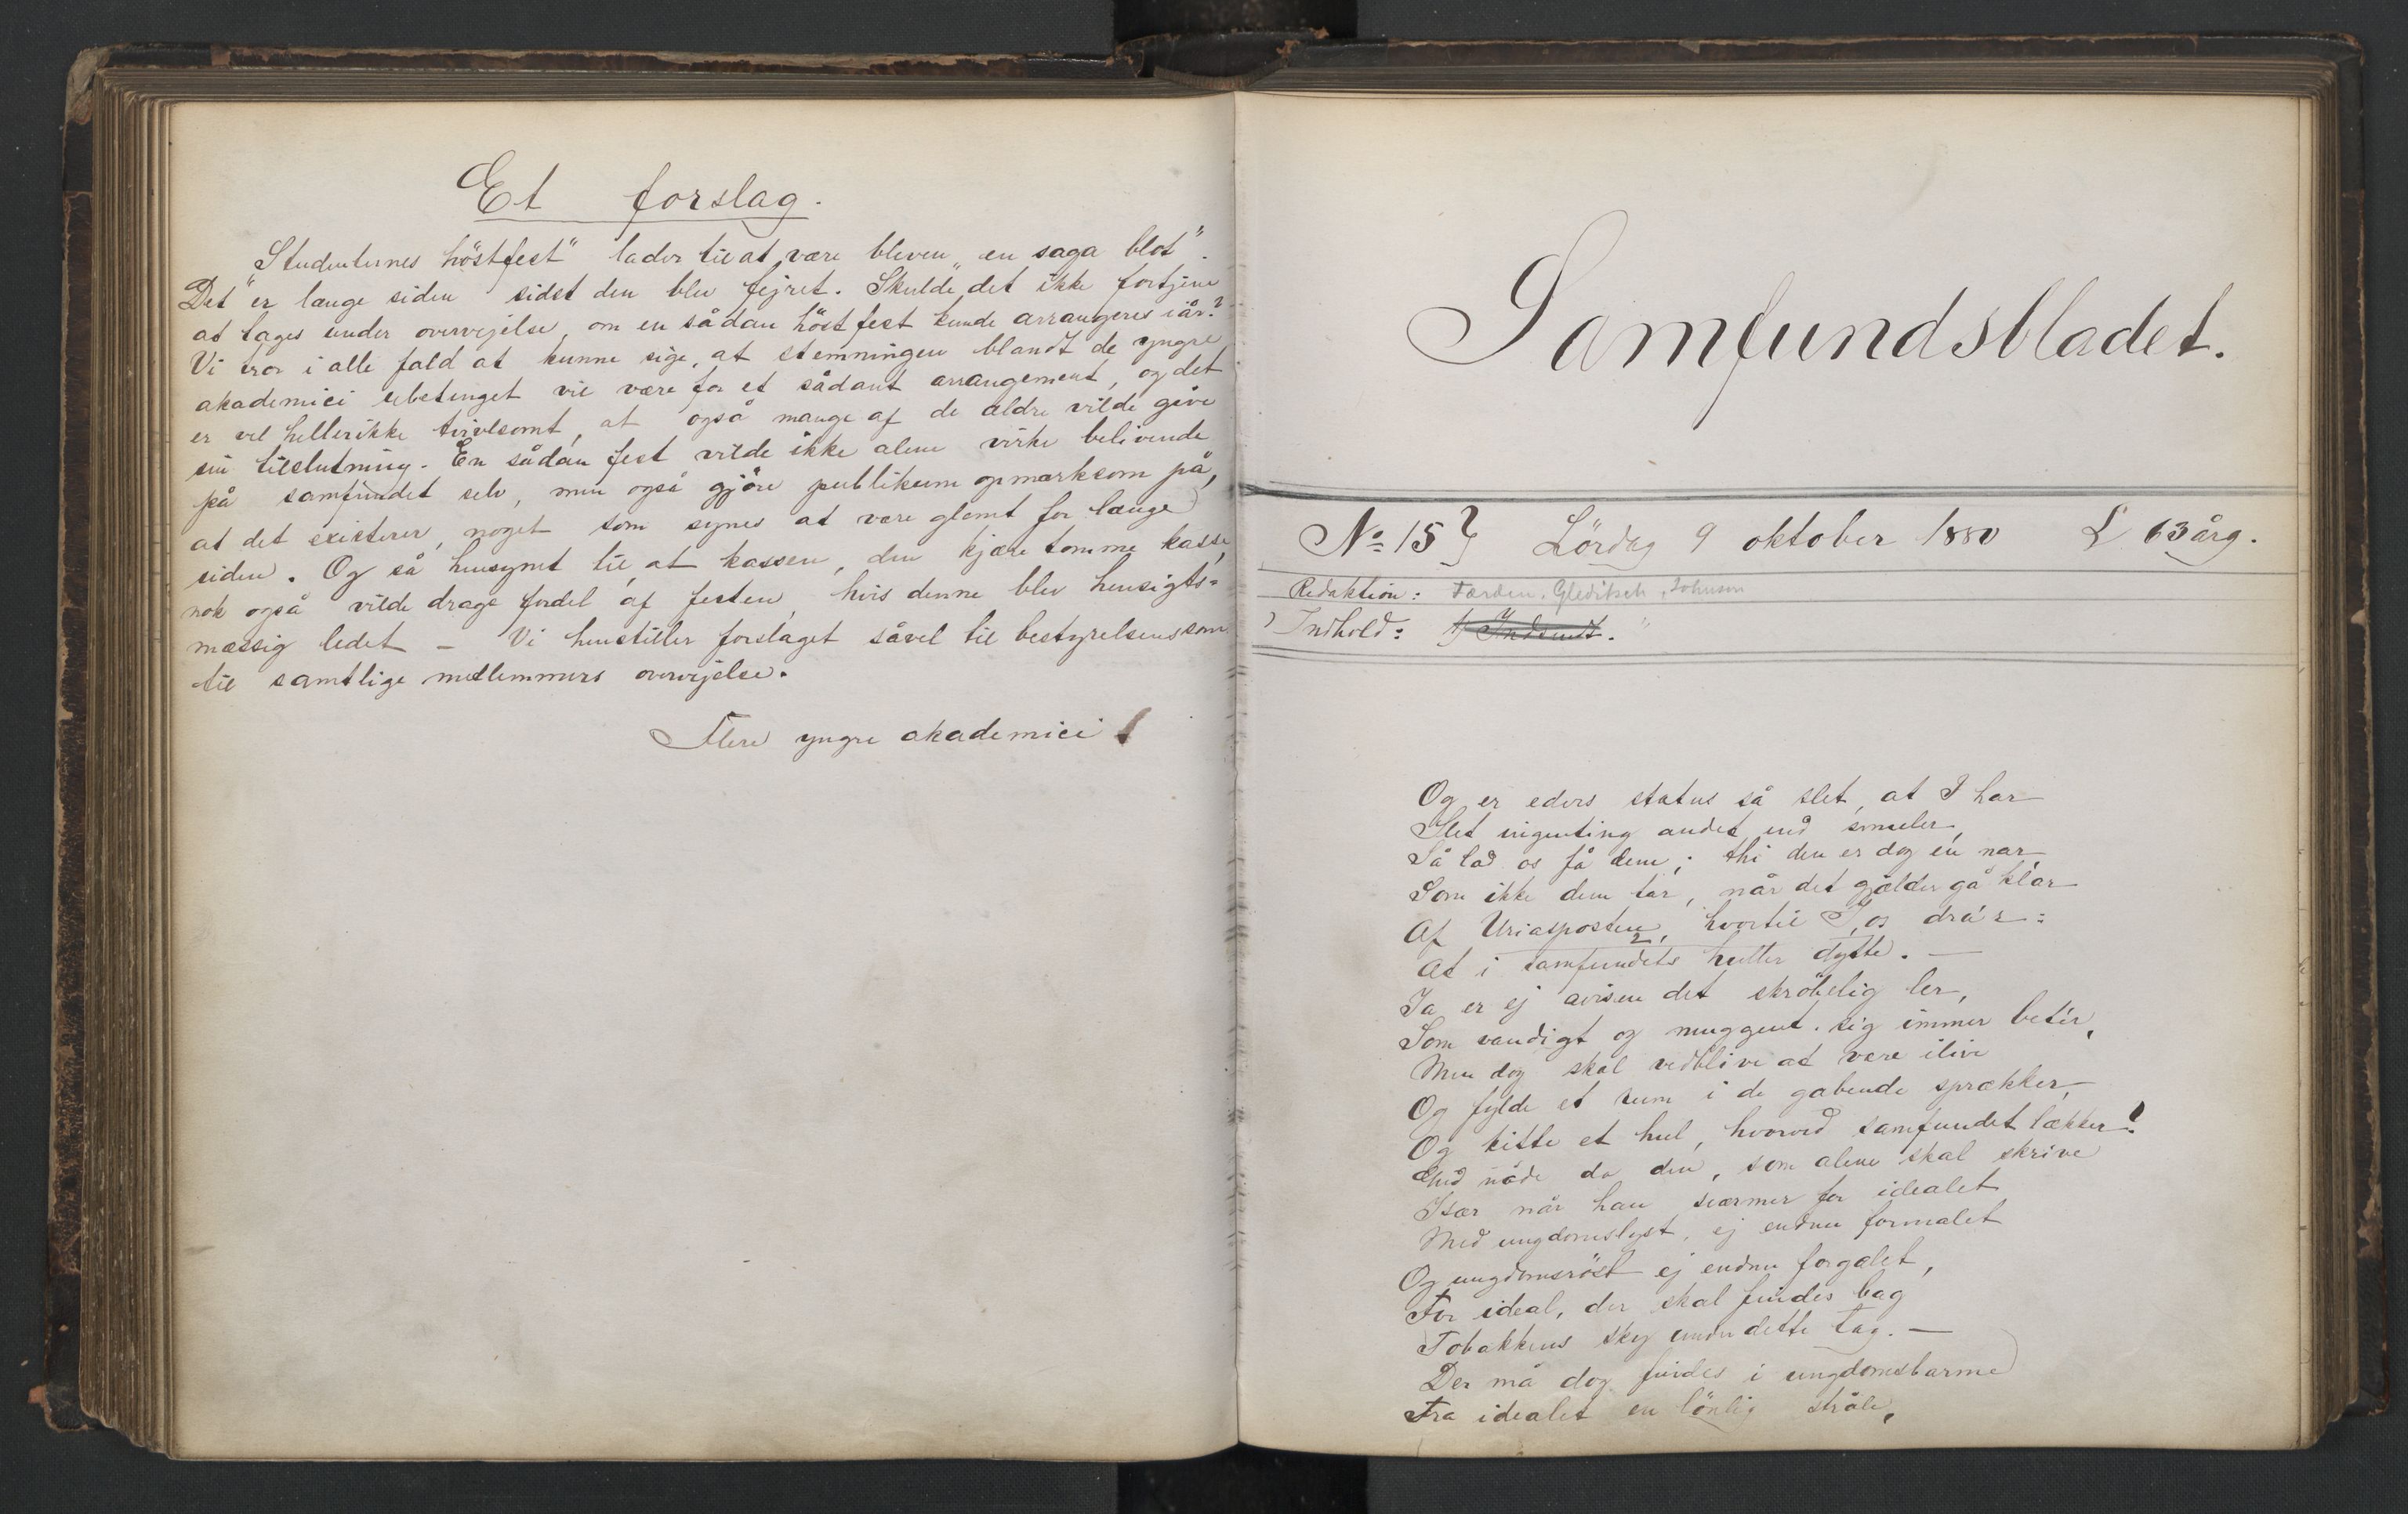 Et forslag.
"Studenternes höstfest" lader til at være bleven "en saga blot".
Det er længe siden sidst den blev fejret. Skulde det ikke fortjene
at tages under overvejelse, om en sådan höstfest kunde arrangeres iår?
Vi tror i alle fald at kunne sige, at stemningen blandt de yngre
akademici ubetinget vil være for et sådant arrangement, og det
er vel hellerikke tvivlsomt, at også mange af de ældre vilde give
sin tilslutning. En sådan fest vilde ikke alene virke belivende
på samfundet selv, men også gjöre publikum opmærksom på,
at det existerer, noget som synes at være glemt for længe
siden. Og så hensynet til, at kassen, den kjære tomme kasse,
nok også vilde drage fordel af festen, hvis denne blev hensigts=
mæssig ledet – Vi henstiller forslaget såvel til bestyrelsens som
til samtlige medlemmers overvejelse.
Flere yngre akademici
Samfundsbladet.
No 15} Lördag 9 oktober 1880 { 63 årg.
Redaktion: Færden, Gleditsch, Johnson
Indhold: 1) Indsendt.
Og er eders status så slet, at I har
Slet ingenting andet end smuler,
Så lad os få dem; thi den er dog en nar
Som ikke dem tar, når det gjælder gå klar
Af Uriasposten, hvortil I os drar:
At i samfundets huller dytte. –
Ja er ej avisen det skröbelig ler,
Som vandigt og muggent sig immer betér,
Men dog skal vedblive at være ilive
Og fylde et rum i de gabende sprækker,
Og kitte et hul, hvorved samfundet lækker?
Gud nåde da den, som alene skal skrive
Især når han sværmer for idealet
Med ungdomslyst, ej endnu formalet
Og ungdomsröst ej endnu forgalet,
For ideal, der skal findes bag
Tobakkens sky under dette tag. –
Der må dog findes i ungdomsbarme
Fra idealet en lönlig stråle,